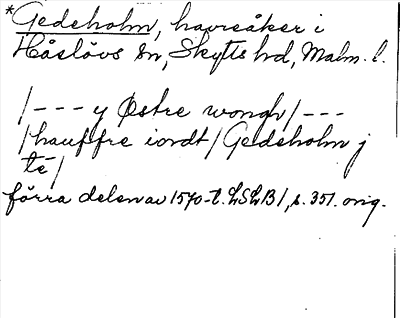 *Gedeholm, havreåker i
Håslövs sn, Skytts hd, Malm. l.
/--- y Østre wongh/---
/hauffre iordt/Gedeholm j
te/
förra delen av 1570-t. LSLB1, s. 351. orig.